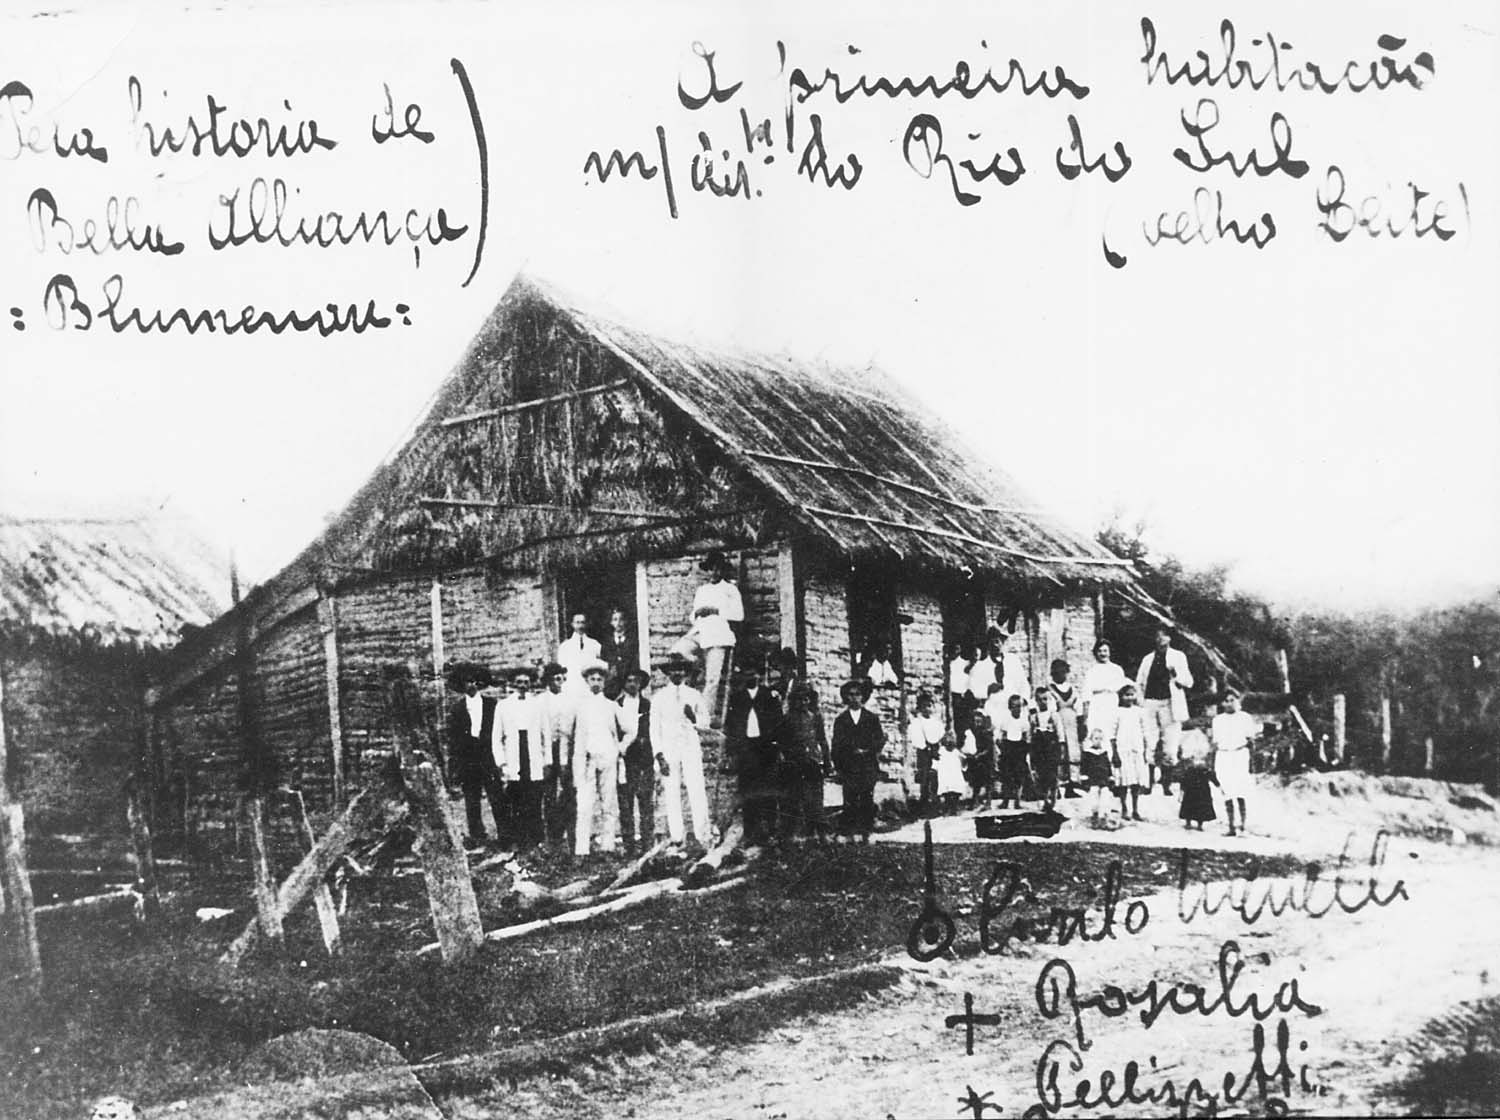 Pela historia de
Bella Alliança)
=Blumenau=
A primeira habitacão
m/dis.to do Rio do Sul
(velho Leite)
Rosalia
Pellizzetti